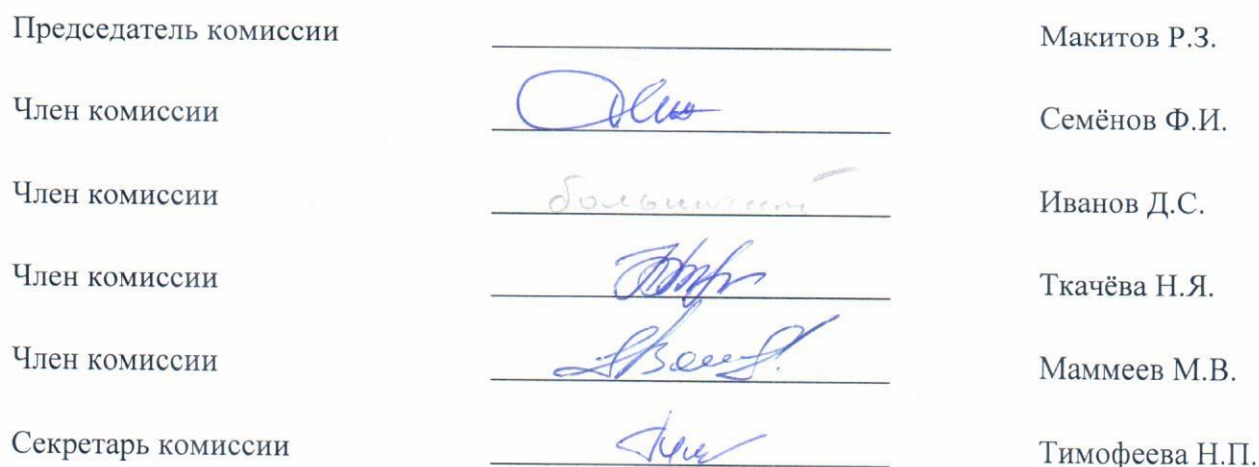 Председатель комиссии Макитов Р.З.
Член комиссии Семёнов Ф.И.
Член комиссии больничный Иванов Д.С.
Член комиссии Ткачёва Н.Я.
Член комиссии Маммеев М.В.
Секретарь комиссии Тимофеева Н.П.